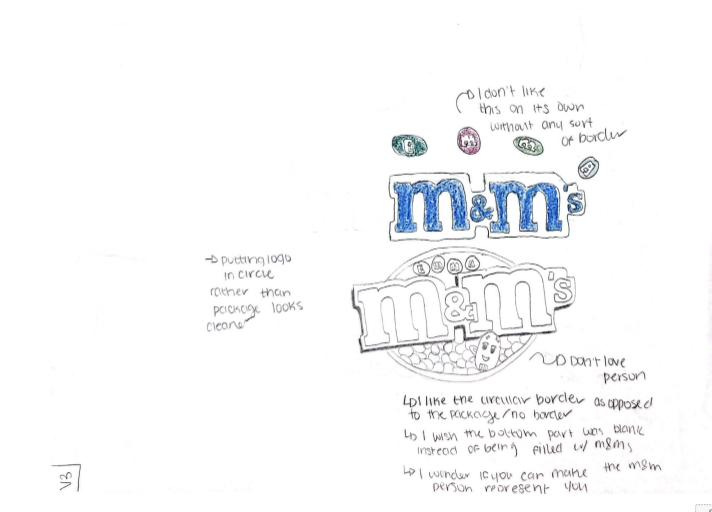 I don't like
this on its own
without any sort
of border
m&m's
→ putting logo
in circle
rather than
package looks
cleaner
E M M A
m&m's
Don't love
person
↳ I like the circular border as opposed
to the package/no border
↳ I wish the bottom part was blank
instead of being filled w/ m&ms
↳ I wonder if you can make the m&m
person represent you
V3